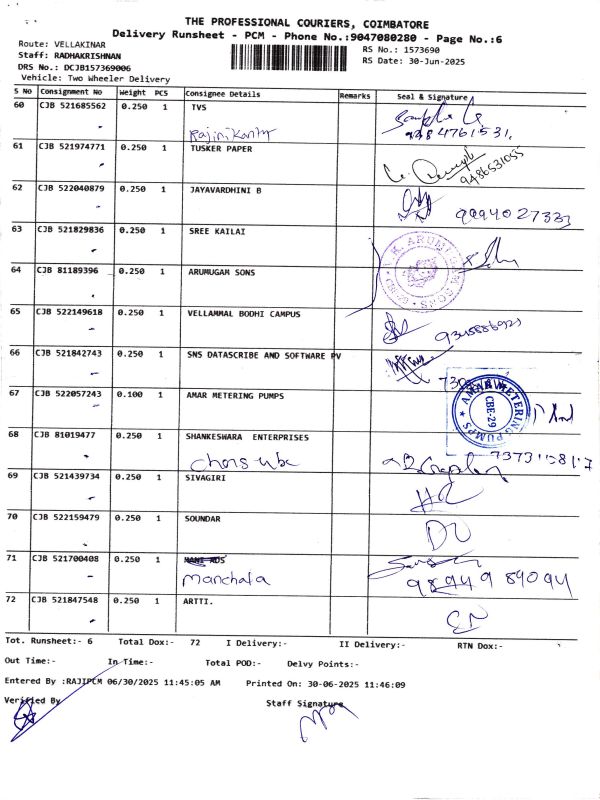 THE PROFESSIONAL COURIERS, COIMBATORE
Delivery Runsheet - PCM - Phone No.:9047080280 - Page No.:6
Route: VELLAKINAR
RS No.: 1573690
Staff: RADHAKRISHNAN
RS Date: 30-Jun-2025
DRS No.: DCJB157369006
Vehicle: Two Wheeler Delivery
S No Consignment No Weight PCS Consignee Details Remarks Seal & Signature
60 CJB 521685562 0.250 1 TVS
Rajinikanth 9484761531.
61 CJB 521974771 0.250 1 TUSKER PAPER
9486531055
62 CJB 522040879 0.250 1 JAYAVARDHINI B
9994027333
63 CJB 521829836 0.250 1 SREE KAILAI
64 CJB 81189396 0.250 1 ARUMUGAM SONS
65 CJB 522149618 0.250 1 VELLAMMAL BODHI CAMPUS
66 CJB 521842743 0.250 1 SNS DATASCRIBE AND SOFTWARE PV
67 CJB 522057243 0.100 1 AMAR METERING PUMPS
AMAR METERING PUMPS
CBE-29
68 CJB 81019477 0.250 1 SHANKESWARA ENTERPRISES
69 CJB 521439734 0.250 1 SIVAGIRI
70 CJB 522159479 0.250 1 SOUNDAR
71 CJB 521700408 0.250 1
Manchala 9894989094
72 CJB 521847548 0.250 1 ARTTI.
Tot. Runsheet:- 6 Total Dox:- 72 I Delivery:- II Delivery:- RTN Dox:-
Out Time:- In Time:- Total POD:- Delvy Points:-
Entered By :RAJIPCM 06/30/2025 11:45:05 AM Printed On: 30-06-2025 11:46:09
Verified By Staff Signature